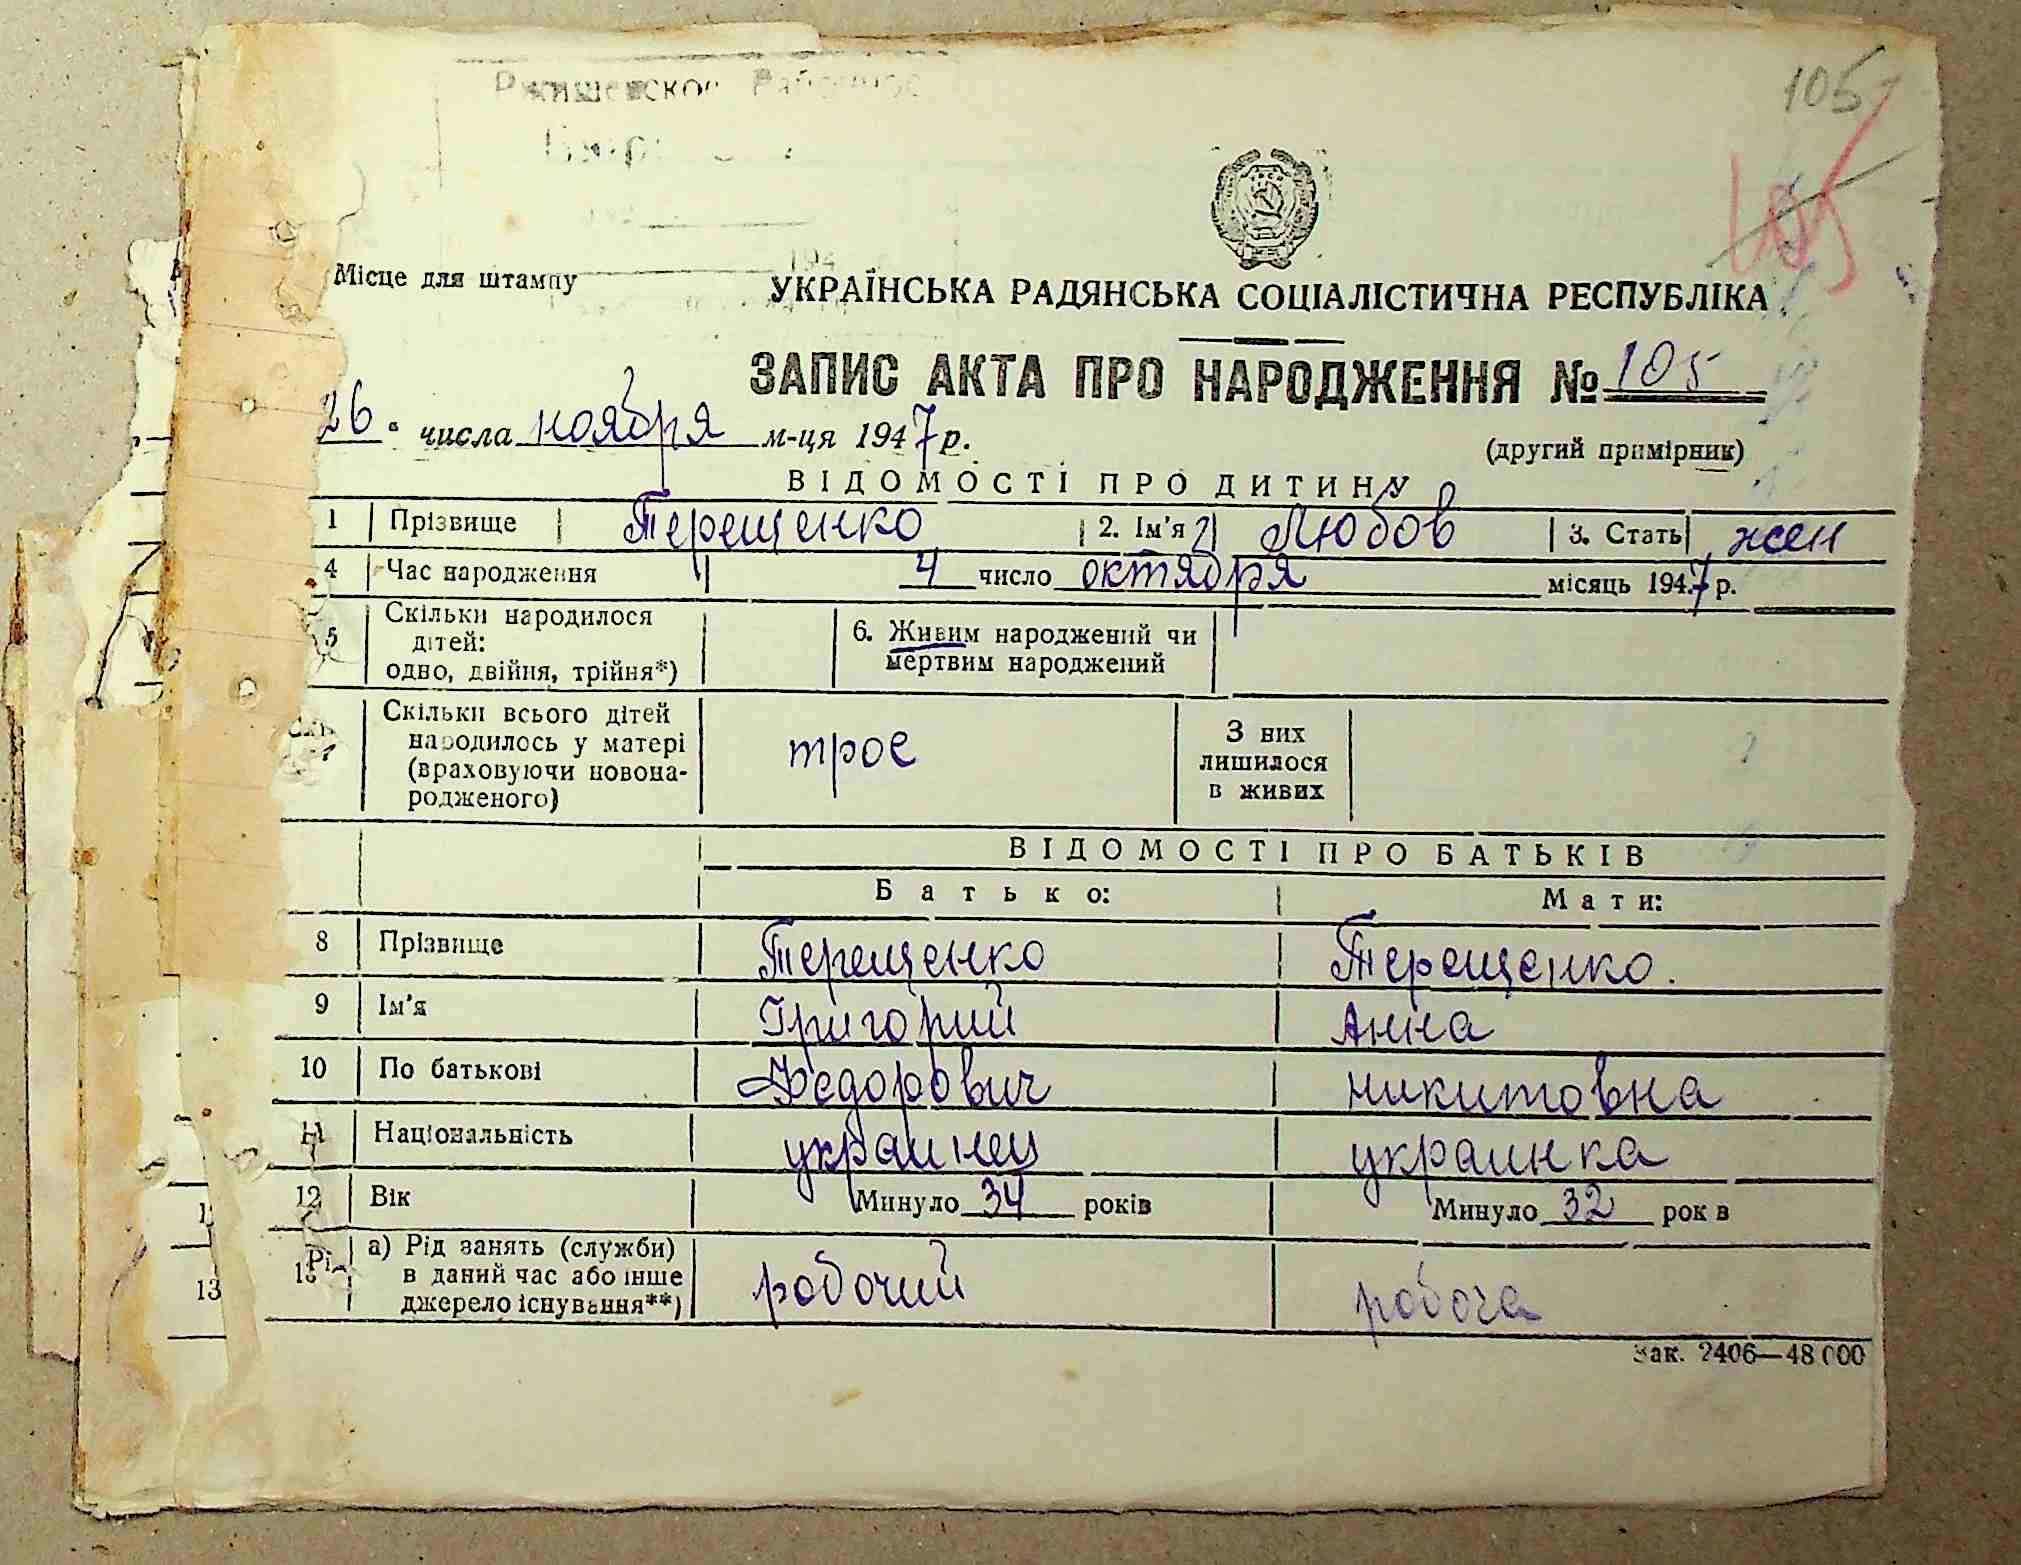 105
Ржищевское Районное
105
194
Місце для штампу
УКРАЇНСЬКА РАДЯНСЬКА СОЦІАЛІСТИЧНА РЕСПУБЛІКА
ЗАПИС АКТА ПРО НАРОДЖЕННЯ № 105
26 числа ноября м-ця 1947 р.
(другий примірник)
ВІДОМОСТІ ПРО ДИТИНУ
1 Прізвище Терещенко 2. Ім'я Любов 3. Стать жен
4 Час народження 4 число октября місяць 1947 р.
5 Скільки народилося дітей: одно, двійня, трійня*) 6. Живим народжений чи мертвим народжений
7 Скільки всього дітей народилось у матері (враховуючи новонародженого) трое З них лишилося в живих
ВІДОМОСТІ ПРО БАТЬКІВ
Батько: Мати:
8 Прізвище Терещенко Терещенко.
9 Ім'я Григорий Анна
10 По батькові Федорович Никитовна
11 Національність украинец украинка
12 Вік Минуло 34 років Минуло 32 рок в
13 а) Рід занять (служби) в даний час або інше джерело існування**) робочий робоча
13
Зак. 2406—48 000